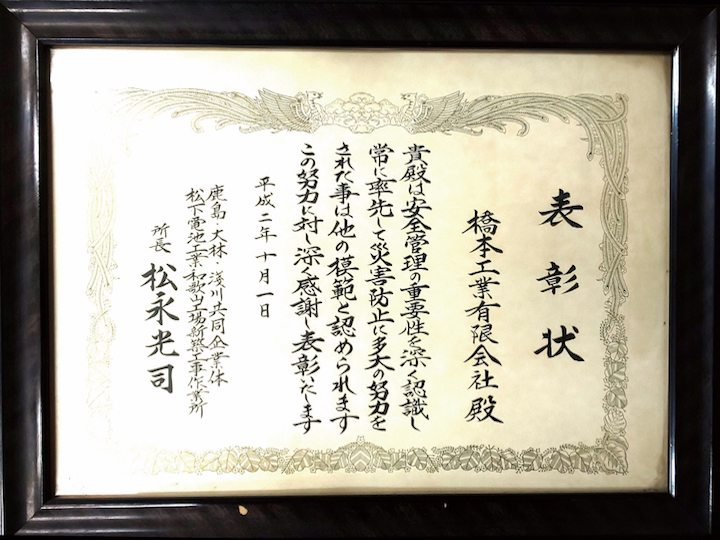 表彰状
橋本工業有限会社殿
貴殿は安全管理の重要性を深く認識し
常に率先して災害防止に多大の努力を
された事は他の模範と認められます
この努力に対し深く感謝し表彰いたします
平成二年十月一日
鹿島・大林・淺川共同企業体
松下電池工業和歌山工場新築工事作業所
所長 松永光司